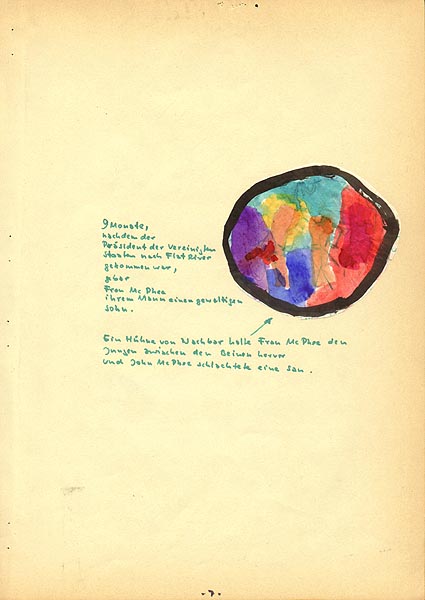 9 Monate,
nachdem der
Präsident der Vereinigten
Staaten nach Flat River
gekommen war,
gebar
Frau Mc Phee
ihrem Mann einen gewaltigen
Sohn.
Ein Hühne von Nachbar holte Frau Mc Phee den
Jungen zwischen den Beinen hervor
und John Mc Phee schlachtete eine Sau.
- 7 -